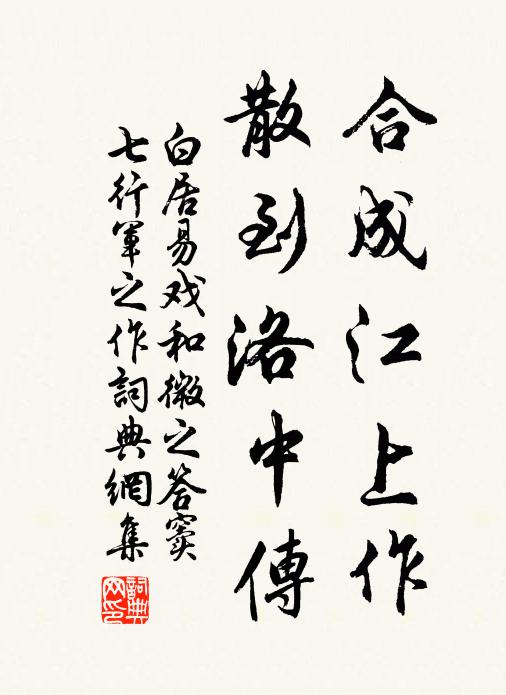 合成江上作
散到洛中傳
白居易戏和微之答窦
七行軍之作詞典網集
詞典网印